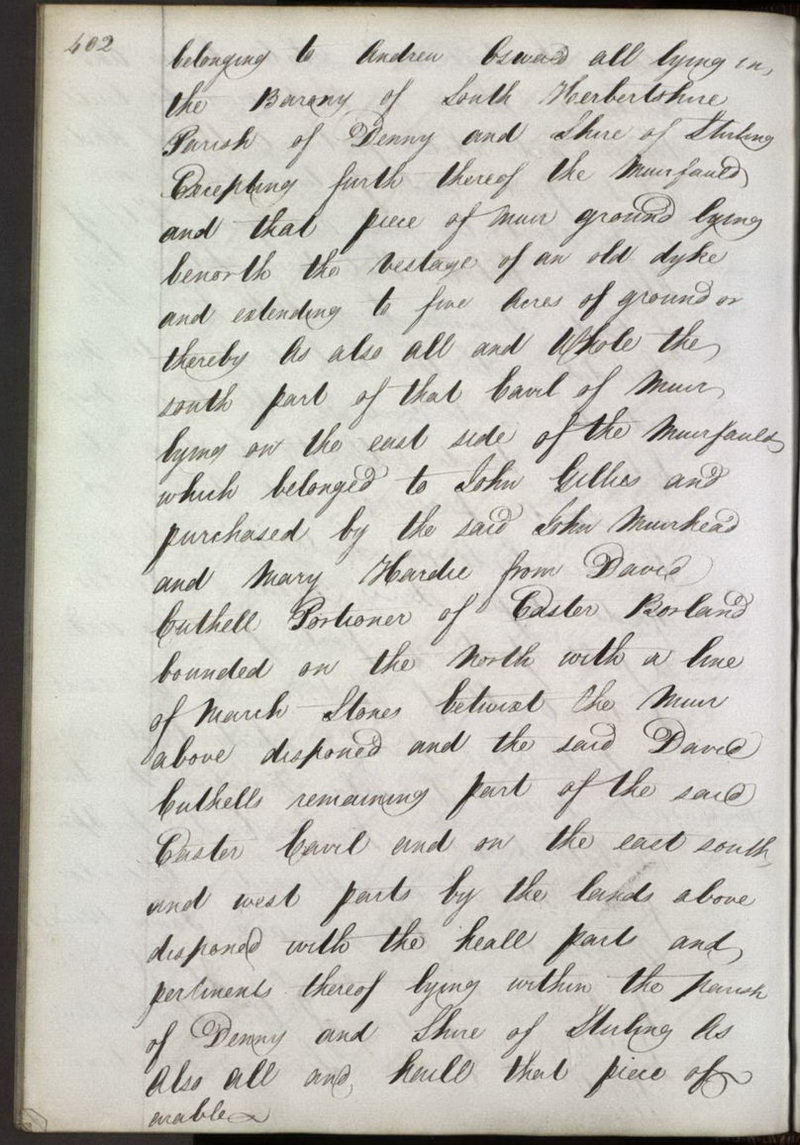 402
belonging to Andrew Oswald all lying in
the Barony of South Herbertshire
Parish of Denny and Shire of Stirling
Excepting furth thereof the Muirfauld
and that piece of Muir ground lying
benorth the Vestage of an old dyke
and extending to five Acres of ground or
thereby As also all and Whole the
south part of that Cavil of Muir
lying on the east side of the Muirfaulds
which belonged to John Gillies and
purchased by the said John Muirhead
and Mary Hardie from David
Cuthell Portioner of Easter Borland
bounded on the North with a line
of March Stones betwixt the Muir
above disponed and the said David
Cuthells remaining Part of the said
Easter Cavil and on the east south
and west parts by the lands above
disponed with the heall parts and
pertinents thereof lying within the Parish
of Denny and Shire of Stirling As
Also all and heall that piece of
arable